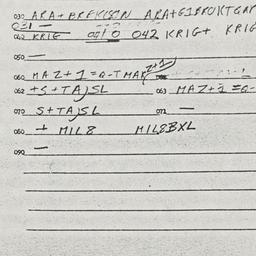 030 ARA+BREKISON ARA+GIBRONTGAR
031 —
040 KRIG 041 0 042 KRIG+ KRIG
050 —
060 MAZ+1=Q-TMAR Z+1
062 +S+TAJSL 063 MAZ+1=Q-
070 S+TAJSL 071 —
080 + MIL8 MIL8BXL
090 —